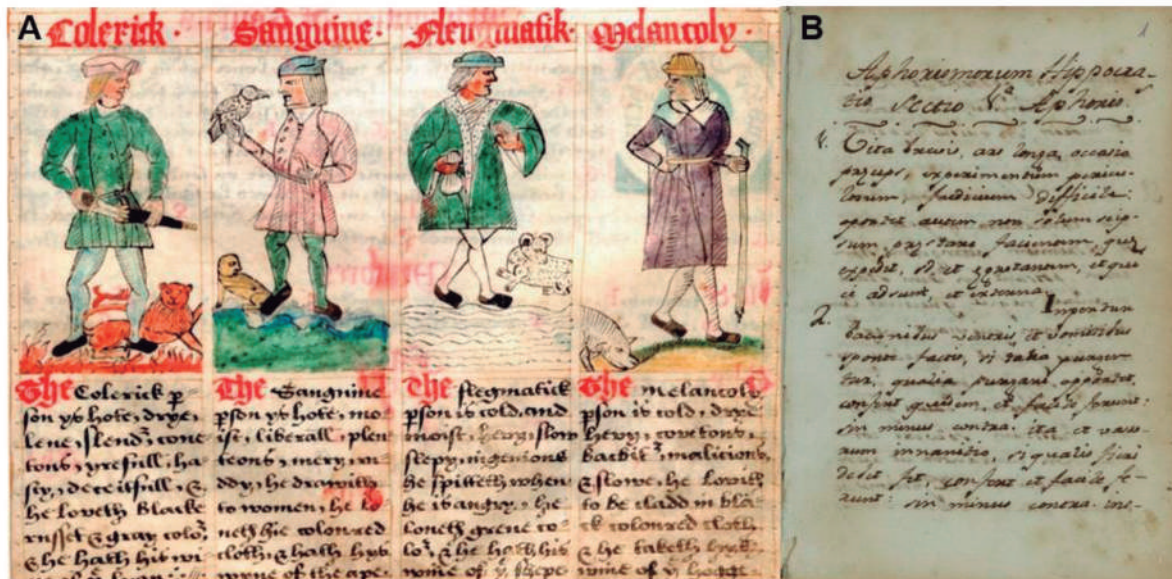 A
Colerick · Sanguine · Fleugmatik · Melancoly ·
The Colerick p̱
son ys hote, drye,
lene, slend', cove
tous, yrefull, ha
sty, deceitfull, &
he loveth blacke
russet & gray colo',
& he hath his wi
The Sanguine
p̱son ys hote, mo
ist, liberall, plen
teous, mery, ru
ddy, he drawith
to women, he lo
veth hie coloured
cloth, & hath hys
wyne of the ape,
The flegmatick
p̱son is cold, and
moist, hevy, slow
slepy, ingenious
he spitteth when
he is angry, he
loveth grene co
lo', & he hath his
wine of yͤ shepe
The melancoly
p̱son is cold, drye
hevy, covetous,
backbit', malicious,
& slowe, he loveth
to be cladd in bla
ck coloured cloth
& he taketh hys
wine of yͤ hogge
B
1
Aphorismorum Hippocra-
tis Sectio 1.ᵃ Aphoris.
1. Vita brevis, ars longa, occasio
præceps, experimentum pericu-
losum, judicium difficile:
oportet autem non solum seip-
sum præstare facientem, quæ
expedit, sed et ægrotantem, et qui
ei adsunt et externa.
2. In pertur
bationibus ventris et vomitibus
sponte factis, si talia purgen-
tur, qualia purgari oportet,
confert quidem, et facile ferunt:
sin minus contra. ita et vaso-
rum innanitio, si qualis fieri
debet fit, confert et facile fe-
runt: sin minus contra. ins-